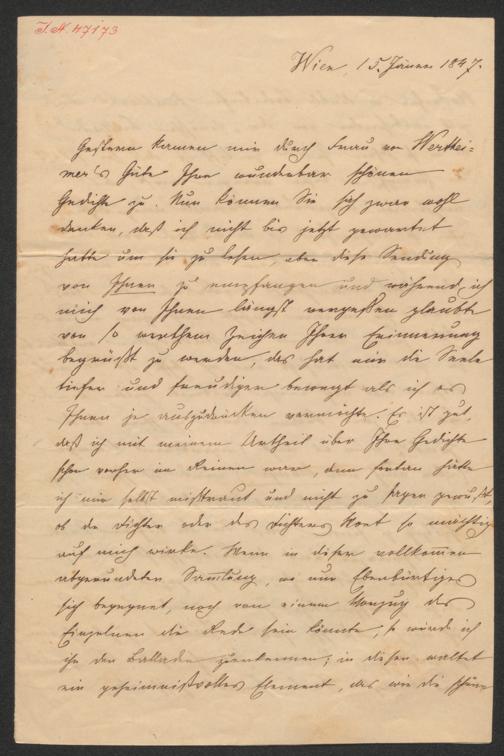 I. N. 47173
Wien, 15. Jänner 1847.
Gestern kamen mir durch Frau von Werthei=
mer's Güte Ihre wunderbar schönen
Gedichte zu. Nun können Sie sich zwar wohl
denken, daß ich nicht bis jetzt gewartet
hatte um sie zu lesen, aber diese Sendung
von Ihnen zu empfangen und während ich
mich von Ihnen längst vergessen glaubte
von so werthem Zeichen Ihrer Erinnerung
begrüßt zu werden, das hat mir die Seele
tiefer und freudiger bewegt als ich es
Ihnen je auszudrücken vermöchte. Es ist gut,
daß ich mit meinem Urtheil über Ihre Gedichte
schon vorher im Reinen war, denn fortan hätte
ich mir selbst mißtraut und nicht zu sagen gewußt,
ob der Dichter oder des Dichters Wort so mächtig
auf mich wirke. Wenn in dieser vollkommen
abgerundeten Samlung, wo nur Ebenbürtiges
sich begegnet, noch von einem Vorzug des
Einzelnen die Rede sein könnte, so würde ich
ihn den Balladen zuerkennen; in diesen waltet
ein geheimnißvolles Element, das wie die schöne